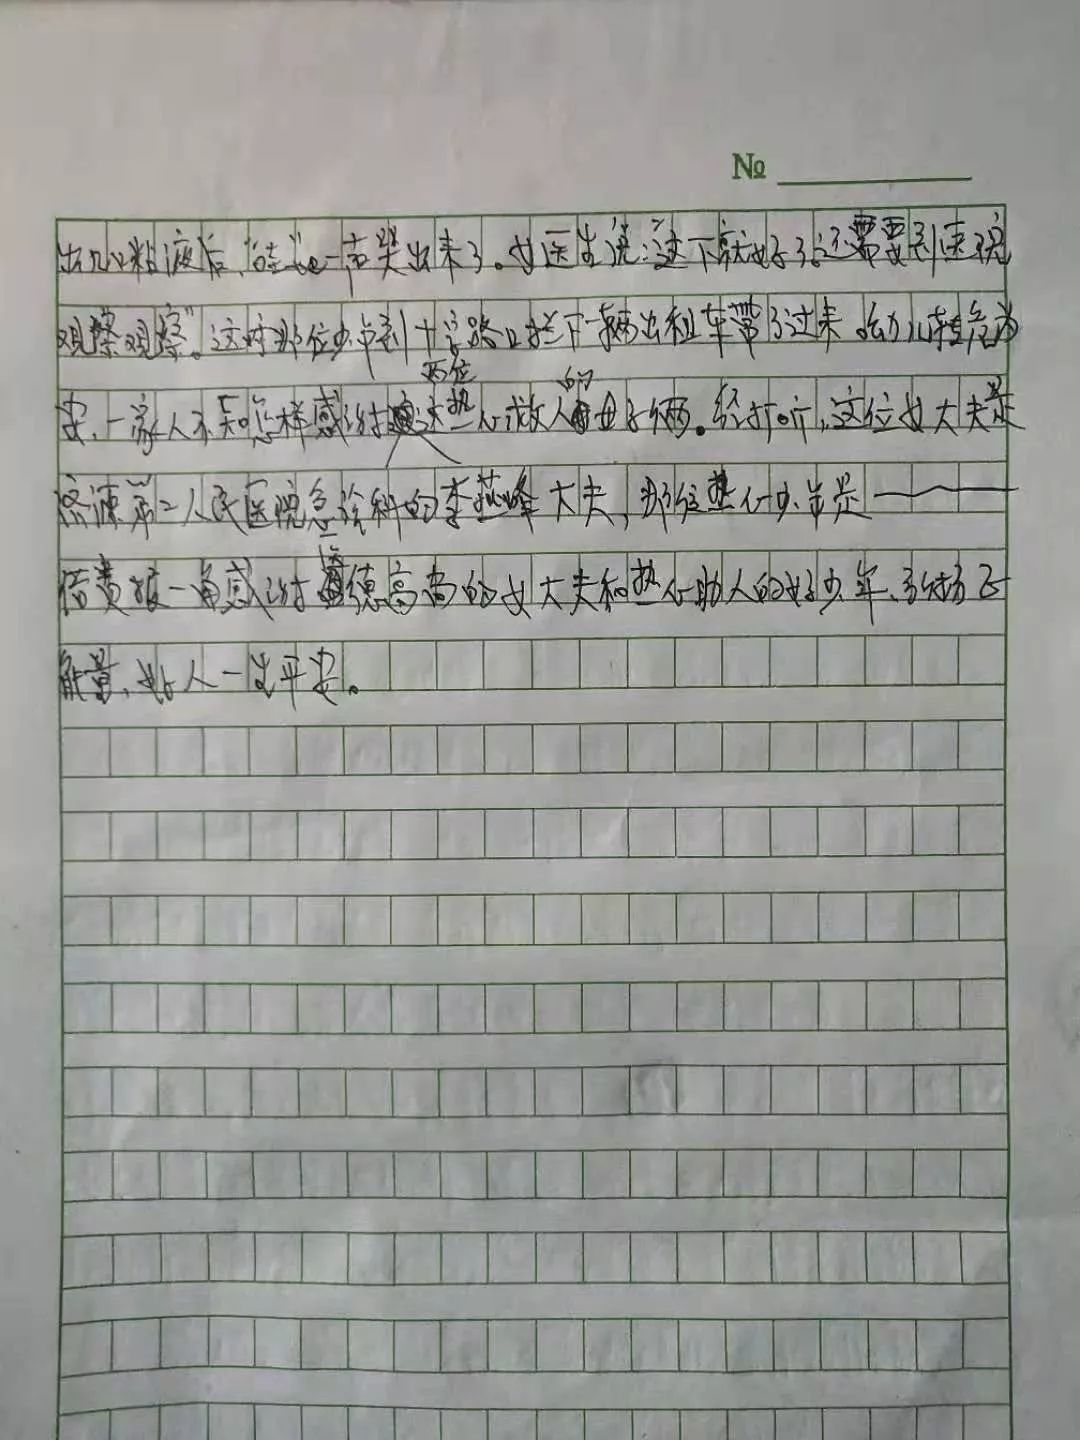 №
出几口粘液后，哇地一声哭出来了。女医生说：“这下就好了，还需要到医院
观察观察”。这时那位少年到十字路口拦下一辆出租车带了过来。幼儿转危为
安，一家人不知怎样感谢这两位热心救人的母子俩。经打听，这位女大夫是
济源第二人民医院急诊科的李燕峰大夫，那位热心少年是
借贵报一角感谢医德高尚的女大夫和热心助人的好少年，弘扬正
能量，好人一生平安。